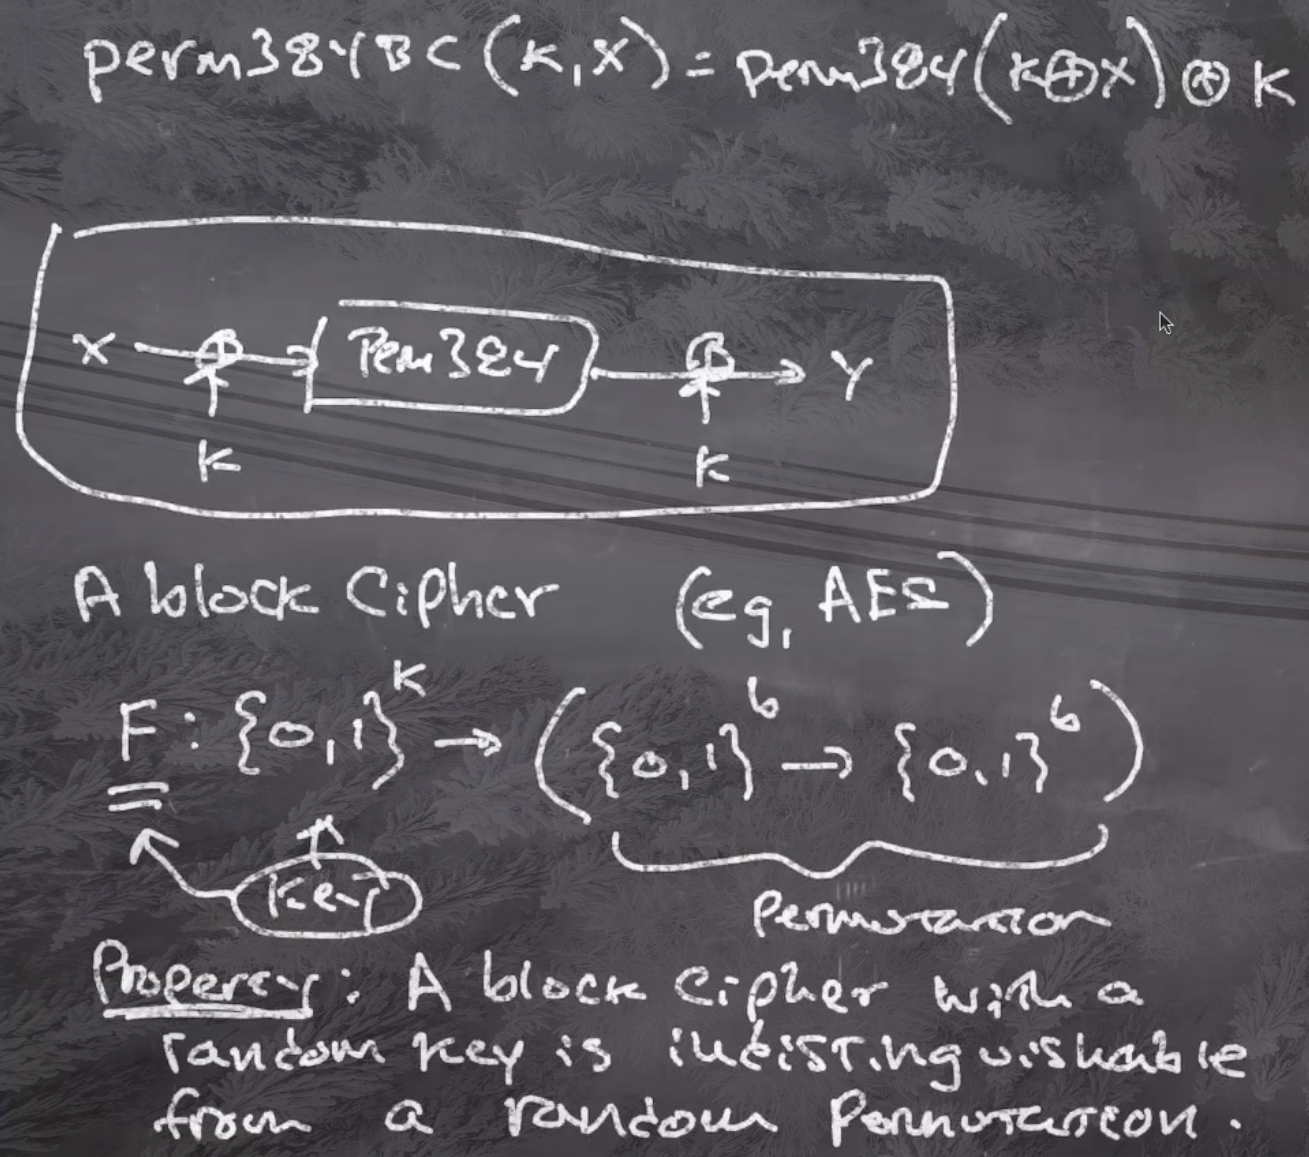 perm384BC(K,X) = perm384(K⊕X)⊕K
X → ⊕ → Perm384 → ⊕ → Y
K K
A block Cipher (eg, AES)
F: {0,1}^K → ({0,1}^b → {0,1}^b)
Key
Permutation
Property: A block cipher with a
random key is indistinguishable
from a random Permutation.